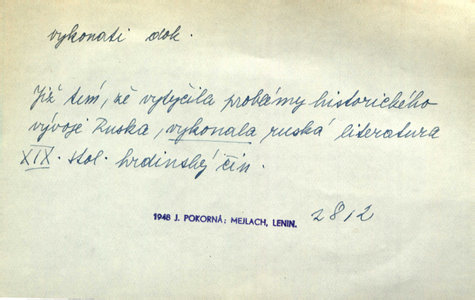 vykonati dok.
Již tím, že vytyčila probámy historického
vývoje Ruska, vykonala ruská literatura
XIX. stol. hrdinský čin.
1948 J. POKORNÁ: MEJLACH, LENIN. 2812